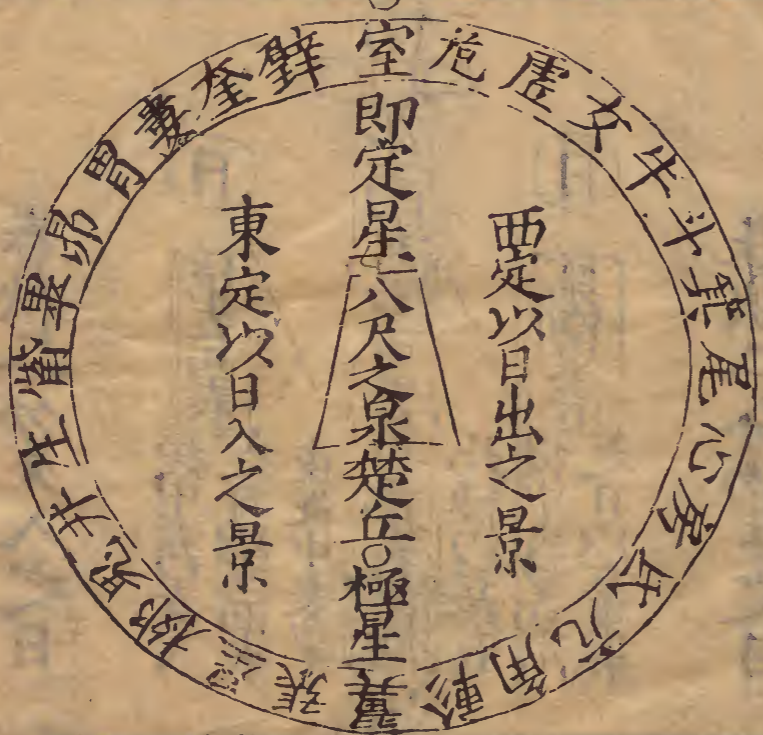 室危虛女牛斗箕尾心房氐亢角軫翼張星柳鬼井觜畢昴胃婁奎壁
西定以日出之景
即定星八尺之泉楚丘○極星
東定以日入之景